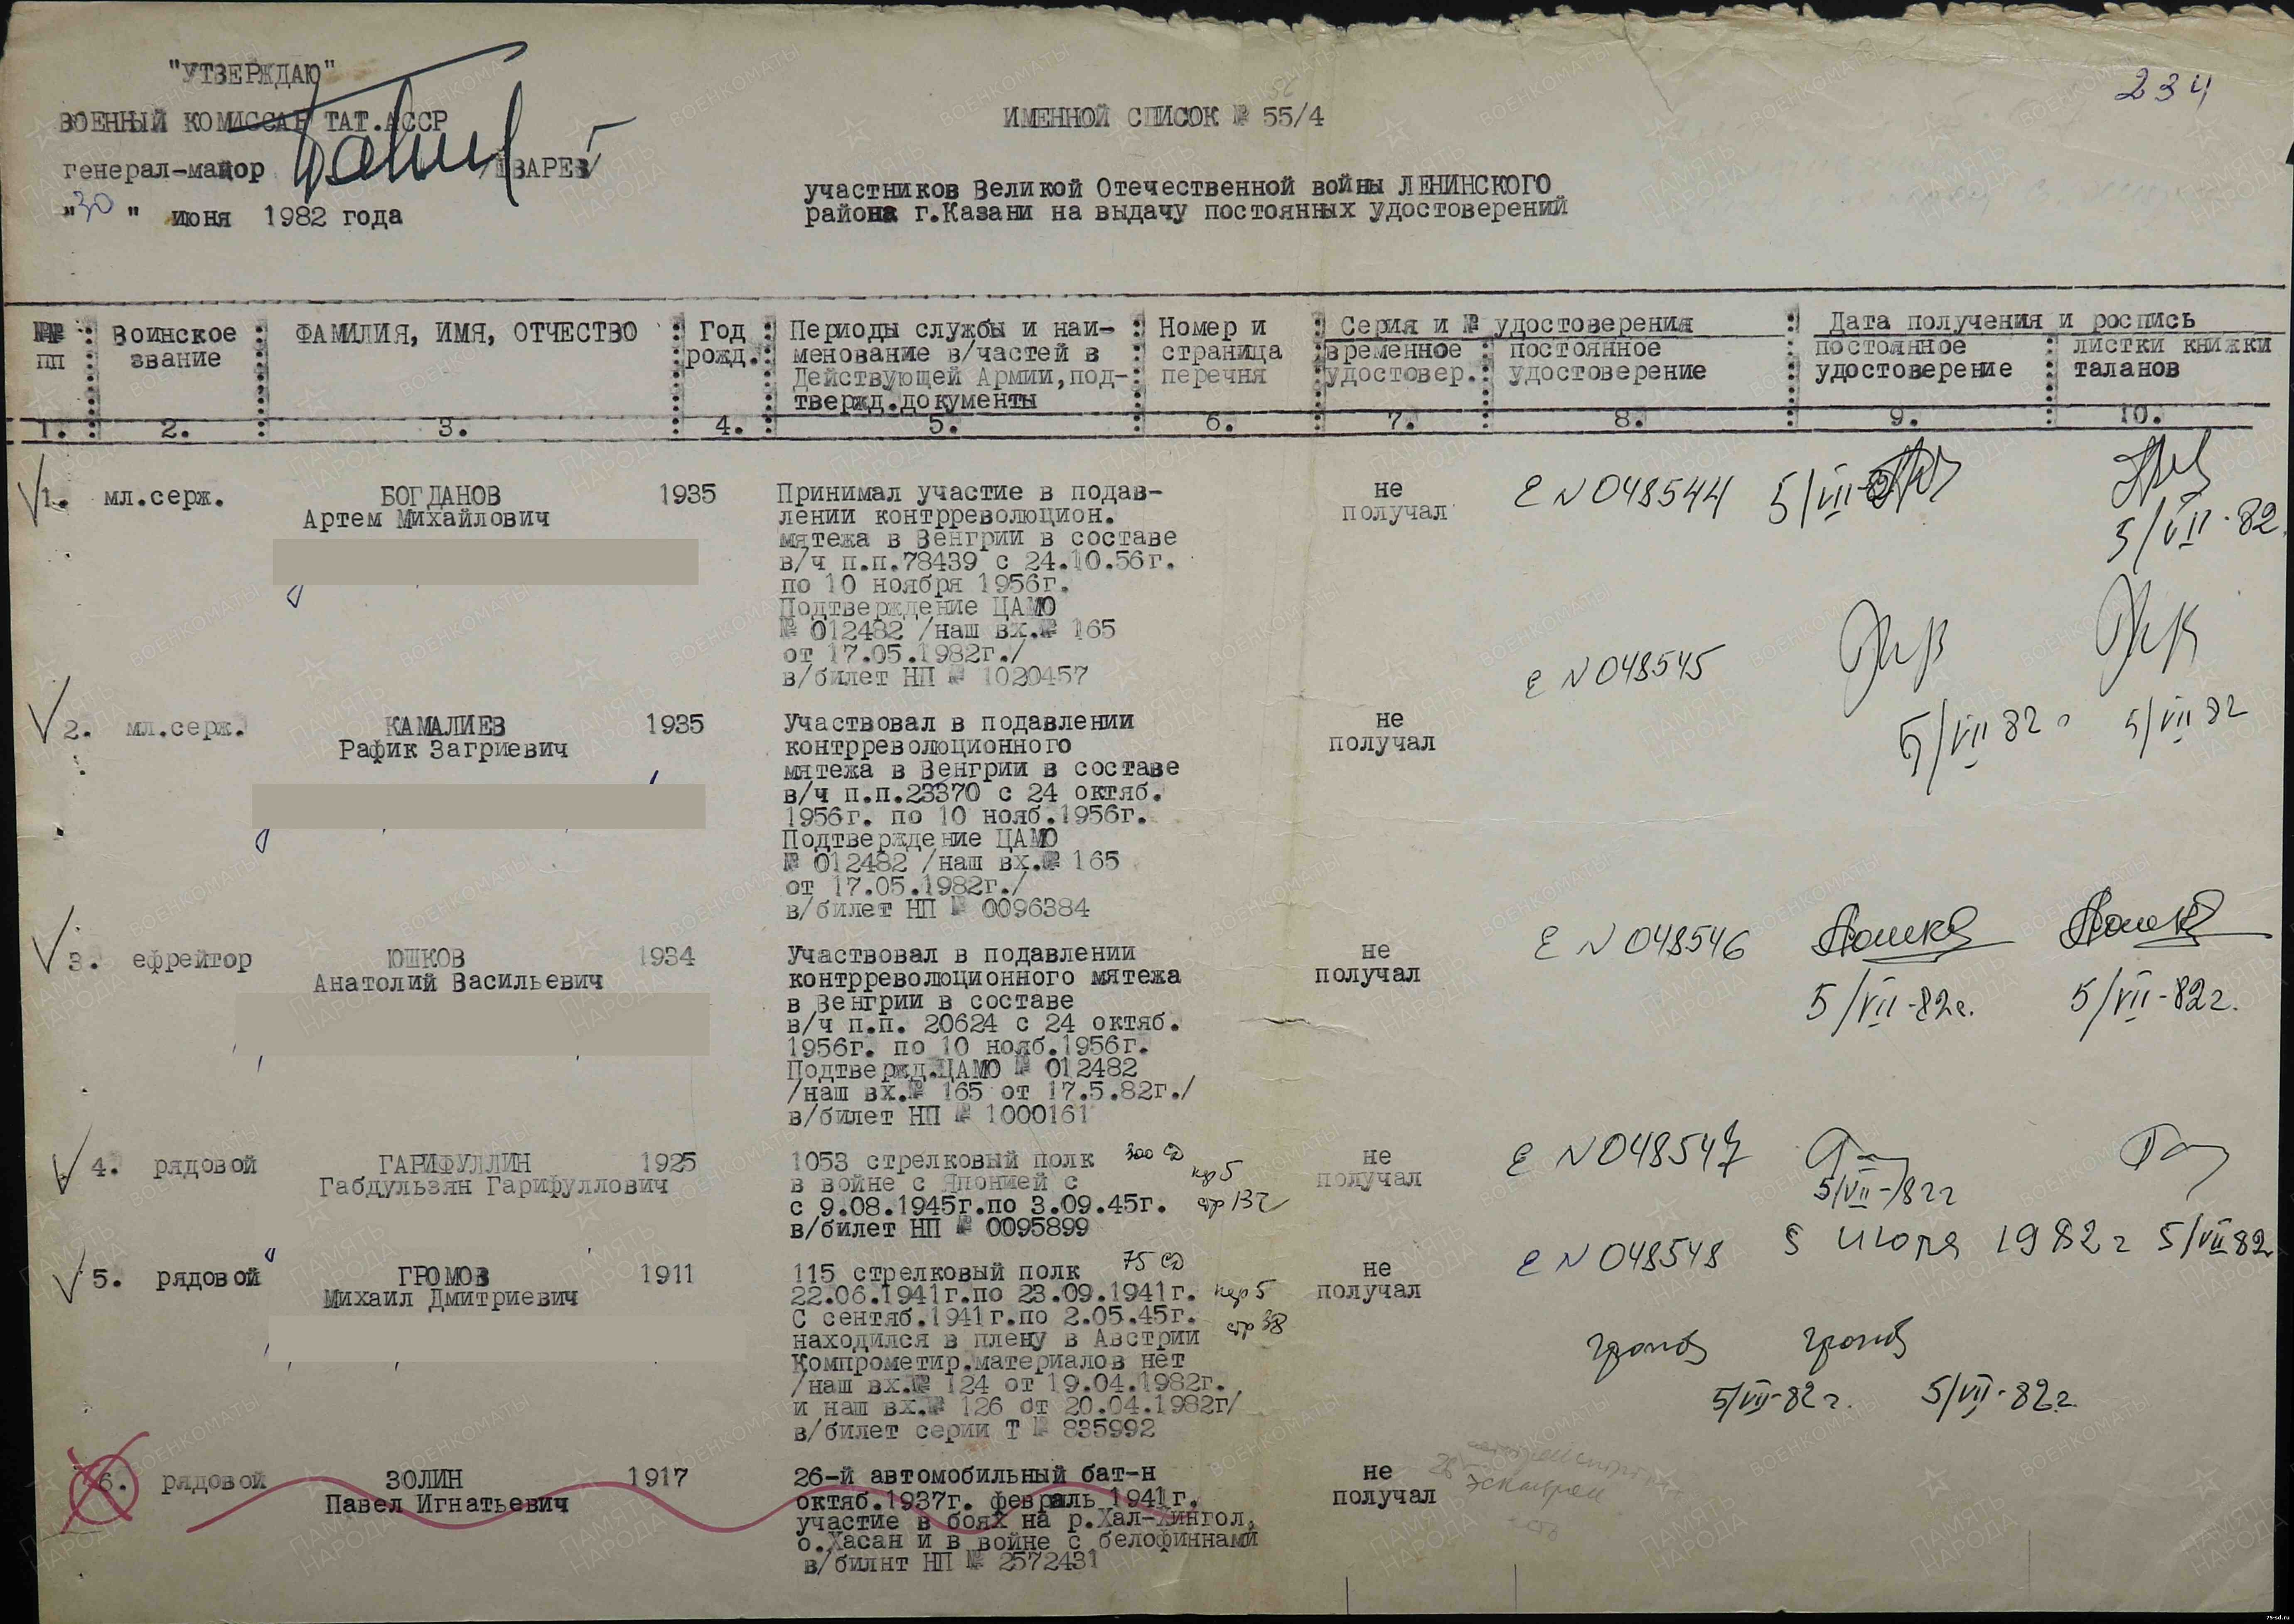 234
"УТВЕРЖДАЮ"
ВОЕННЫЙ КОМИССАР ТАТ.АССР
генерал-майор
"30" июня 1982 года
ИМЕННОЙ СПИСОК № 55/4
участников Великой Отечественной войны ЛЕНИНСКОГО
района г.Казани на выдачу постоянных удостоверений
№№ пп
Воинское звание
ФАМИЛИЯ, ИМЯ, ОТЧЕСТВО
Год рожд.
Периоды службы и наи-
менование в/частей в
Действующей Армии,под-
твержд.документы
Номер и
страница
перечня
Серия и № удостоверения
временное
удостовер.
постоянное
удостоверение
Дата получения и роспись
постоянное
удостоверение
листки книжки
таланов
1. 2. 3. 4. 5. 6. 7. 8. 9. 10.
1. мл.серж. БОГДАНОВ 1935
Артем Михайлович
Принимал участие в подав-
лении контрреволюцион.
мятежа в Венгрии в составе
в/ч п.п.78439 с 24.10.56г.
по 10 ноября 1956г.
Подтверждение ЦАМО
№ 012482 /наш вх.№ 165
от 17.05.1982г./
в/билет НП № 1020457
не
получал
Е N 048544
5/VII
5/VII-82
2. мл.серж. КАМАЛИЕВ 1935
Рафик Загриевич
Участвовал в подавлении
контрреволюционного
мятежа в Венгрии в составе
в/ч п.п.23370 с 24 октяб.
1956г. по 10 нояб.1956г.
Подтверждение ЦАМО
№ 012482 /наш вх.№ 165
от 17.05.1982г./
в/билет НП № 0096384
не
получал
Е N 048545
5/VII 82 г
5/VII 82
3. ефрейтор ЮШКОВ 1934
Анатолий Васильевич
Участвовал в подавлении
контрреволюционного мятежа
в Венгрии в составе
в/ч п.п. 20624 с 24 октяб.
1956г. по 10 нояб.1956г.
Подтвержд.ЦАМО № 012482
/наш вх.№ 165 от 17.5.82г./
в/билет НП № 1000161
не
получал
Е N 048546
5/VII-82г.
5/VII-82г.
4. рядовой ГАРИФУЛЛИН 1925
Габдульзян Гарифуллович
1053 стрелковый полк 300 сд
в войне с Японией с пер 5
с 9.08.1945г.по 3.09.45г. стр 132
в/билет НП № 0095899
не
получал
Е N 048547
5/VII-82г
5 июля 1982г 5/VII 82
5. рядовой ГРОМОВ 1911
Михаил Дмитриевич
115 стрелковый полк 75 сд
22.06.1941г.по 23.09.1941г. пер 5
С сентяб.1941г.по 2.05.45г. стр 38
находился в плену в Австрии
Компрометир.материалов нет
/наш вх.№ 124 от 19.04.1982г.
и наш вх.№ 126 от 20.04.1982г/
в/билет серии Т № 835992
не
получал
Е N 048548
громов громов
5/VII-82 г. 5/VII-82г.
6. рядовой ЗОЛИН 1917
Павел Игнатьевич
26-й автомобильный бат-н
октяб.1937г. февраль 1941г.
участие в боях на р.Хал-Хингол,
о.Хасан и в войне с белофиннами
в/билнт НП № 2572431
не
получал
ПАМЯТЬ НАРОДА
ВОЕНКОМАТЫ
75-sd.ru